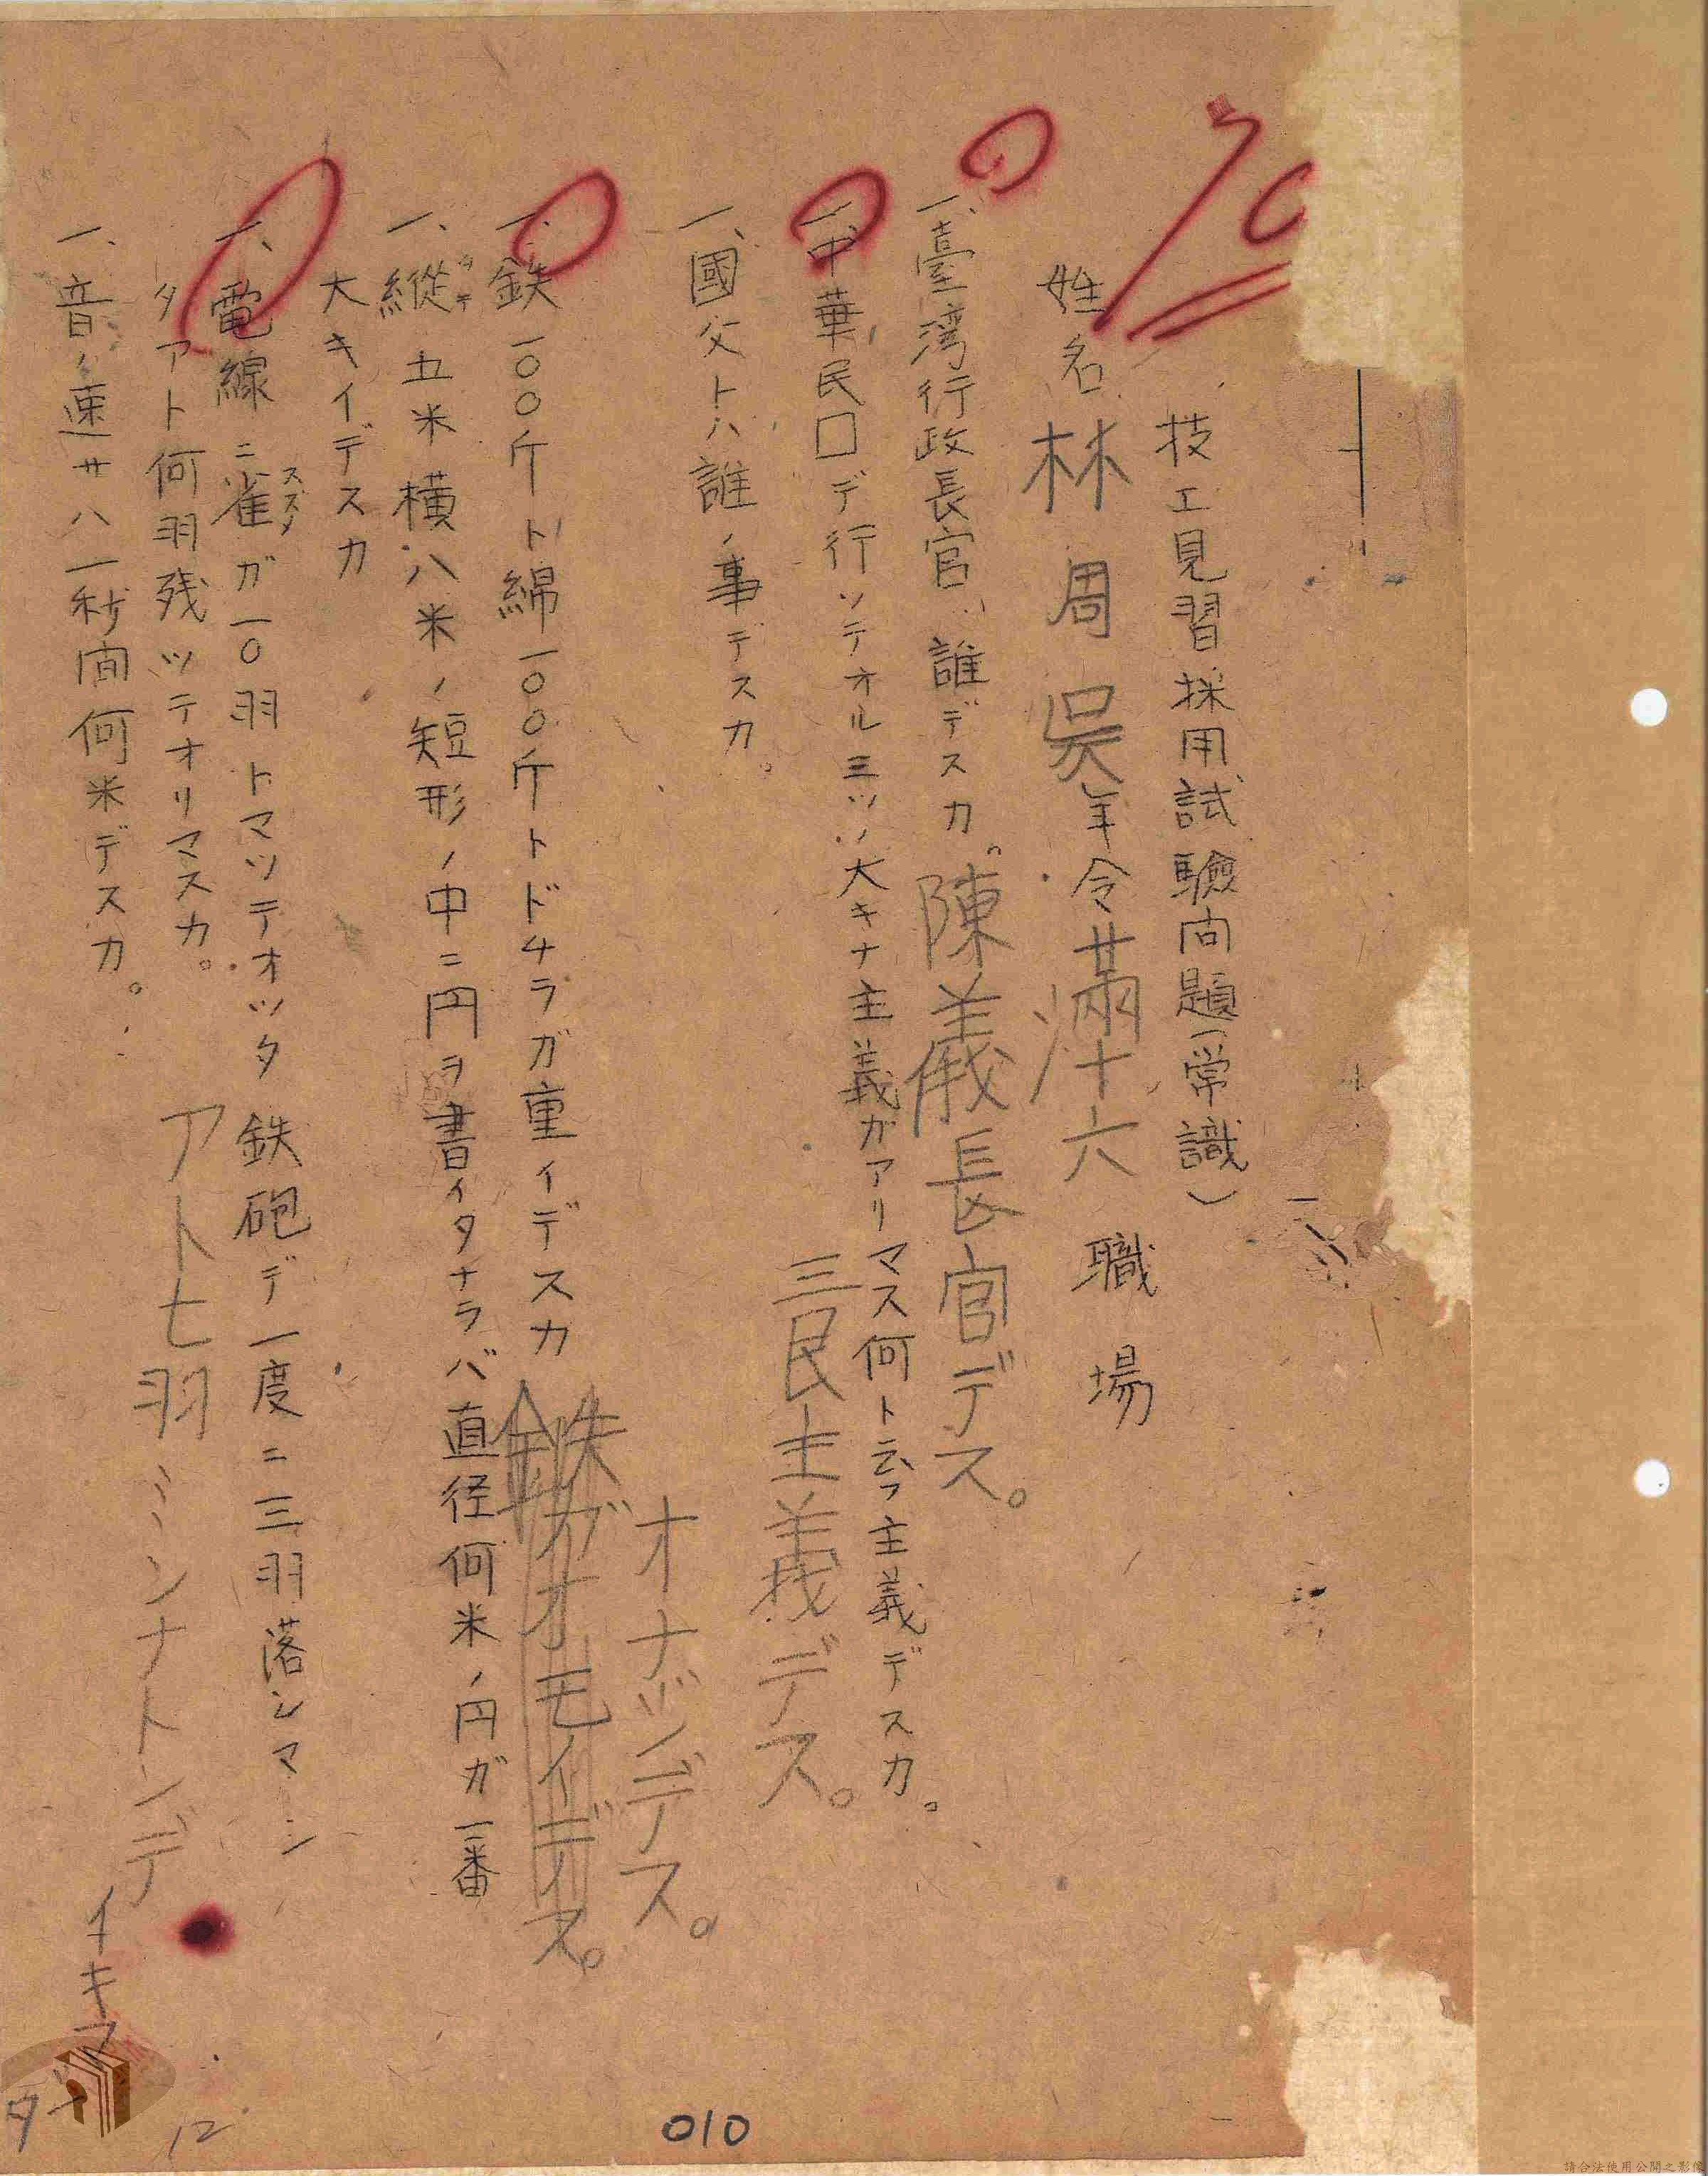 70
技工見習採用試驗問題(常識)
姓名 林周 年令 滿十六 職場
一、臺湾行政長官ハ誰デスカ。陳儀長官デス。
一、中華民口デ行ツテオル三ツノ大キナ主義ガアリマス何ト云フ主義デスカ。
三民主義デス。
一、國父トハ誰ノ事デスカ。
一、鉄一〇〇斤ト綿一〇〇斤トドチラガ重イデスカ
鉄ガオモイデス。
オナジデス。
一、縦タテ五米横八米ノ短形ノ中ニ円ヲ書イタナラバ直径何米ノ円ガ一番
大キイデスカ
一、電線ニ雀スズメガ一〇羽トマツテオツタ鉄砲デ一度ニ三羽落シマシ
タアト何羽残ツテオリマスカ。
アト七羽ミンナトンデイキマシタ
一、音ノ速サハ一秒間何米デスカ。
12
010
請合法使用公開之影像